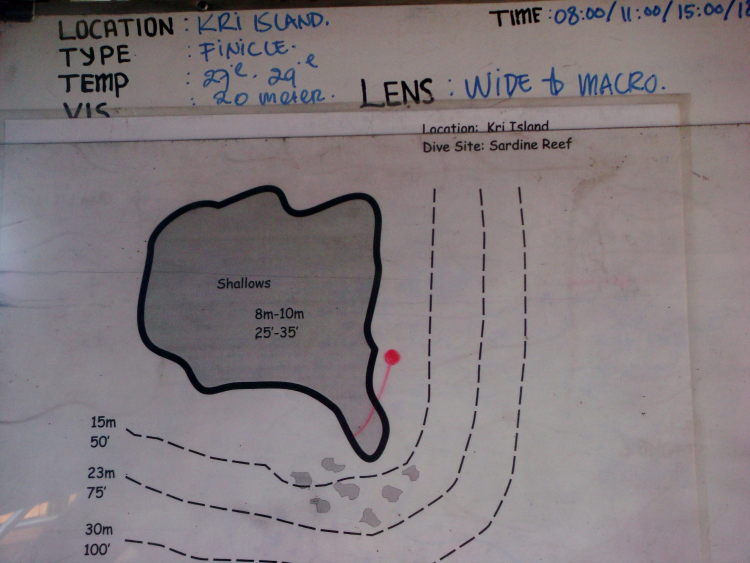 LOCATION : KRI ISLAND.
TIME : 08:00/11:00/15:00/18
TYPE : FINICLE.
TEMP : 29°c. 29°c
VIS : 20 meter.
LENS : WIDE to MACRO.
Location: Kri Island
Dive Site: Sardine Reef
Shallows
8m-10m
25'-35'
15m
50'
23m
75'
30m
100'